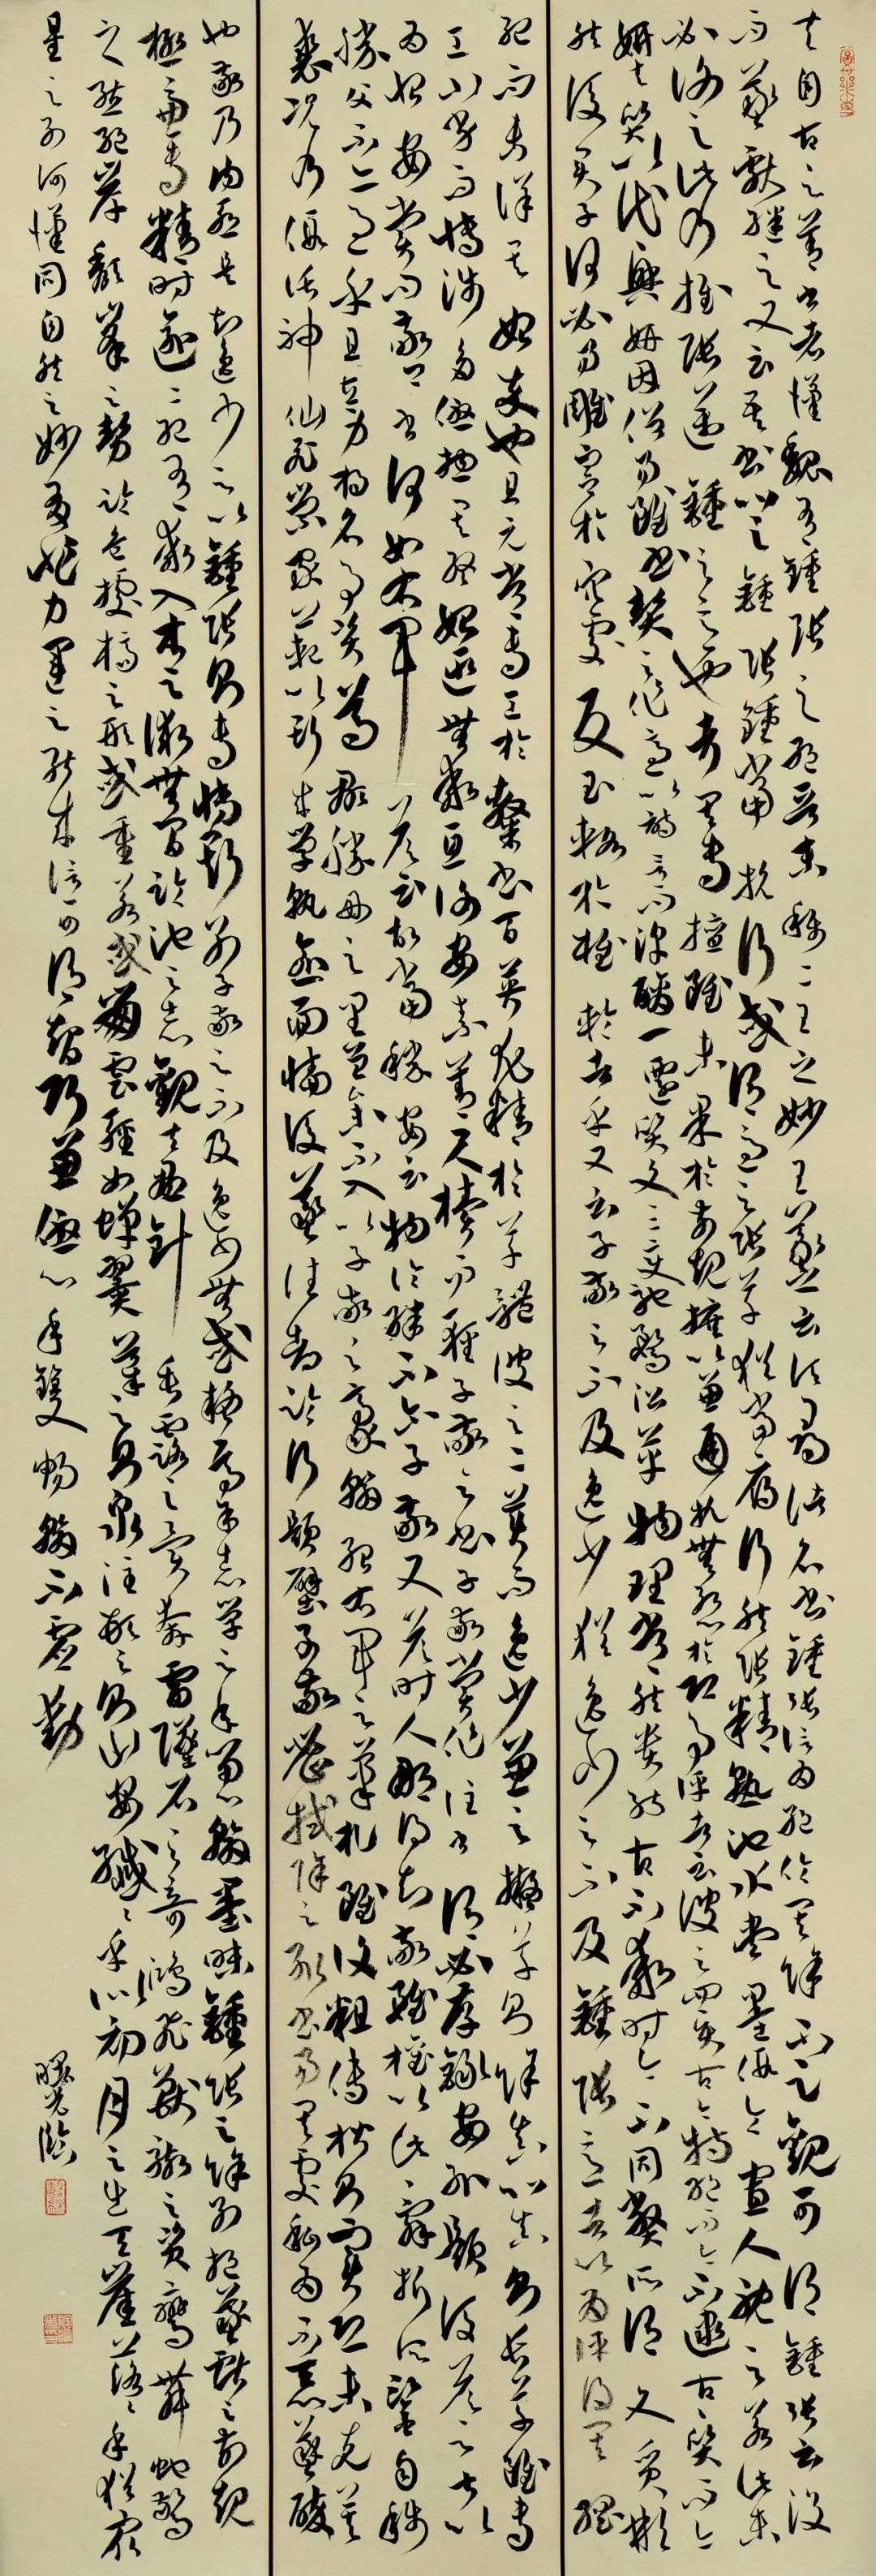 夫自古之善書者漢魏有鍾張之絕晉末稱二王之妙王羲之云頃尋諸名書鍾張信為絕倫其餘不足觀可謂鍾張云沒
而羲獻繼之又云吾書比之鍾張鍾當抗行或謂過之張草猶當雁行然張精熟池水盡墨假令寡人耽之若此未
必謝之此乃推張邁鍾之意也考其專擅雖未果於前規摭以兼通故無慚於即事評者云彼之四賢古今特絕而今不逮古古質而今
妍夫質以代興妍因俗易雖書契之作適以記言而淳醨一遷質文三變馳騖沿革物理常然貴能古不乖時今不同弊所謂文質彬彬
然後君子何必易雕宮於穴處反玉輅於椎輪者乎又云子敬之不及逸少猶逸少之不及鍾張意者以為評得其綱
紀而未詳其始卒也且元常專工於隸書百英尤精於草體彼之二美而逸少兼之擬草則餘真比真則長草雖專
工小劣而博涉多優揔其終始匪無乖互謝安素善尺牘而輕子敬之書子敬嘗作佳書謂必存錄安輒題後答之甚以
為恨安嘗問敬卿書何如右軍答云故當勝安云物論殊不爾子敬又答時人那得知敬雖權以此辭折安所鑒自稱
勝父不亦過乎且立身揚名事資尊顯勝母之里曾參不入以子敬之豪翰紹右軍之筆札雖復粗傳楷則實恐未克箕
裘況乃假託神仙恥崇家範以斯成學孰愈面牆後羲之往都臨行題壁子敬密拭除之輒書易其處私為不惡羲醉
也敬乃內慚是知逸少之比鍾張則專博斯別子敬之不及逸少無或疑焉余志學之年留心翰墨味鍾張之餘烈挹羲獻之前規
極慮專精時逾二紀有乖入木之術無間臨池之志觀夫懸針垂露之異奔雷墜石之奇鴻飛獸駭之資鸞舞蛇驚
之態絕岸頹峰之勢臨危據槁之形或重若崩雲輕如蟬翼導之則泉注頓之則山安纖纖乎似初月之出天崖落落乎猶眾
星之列河漢同自然之妙有非力運之能成信可謂智巧兼優心手雙暢翰不虛動
曙光臨